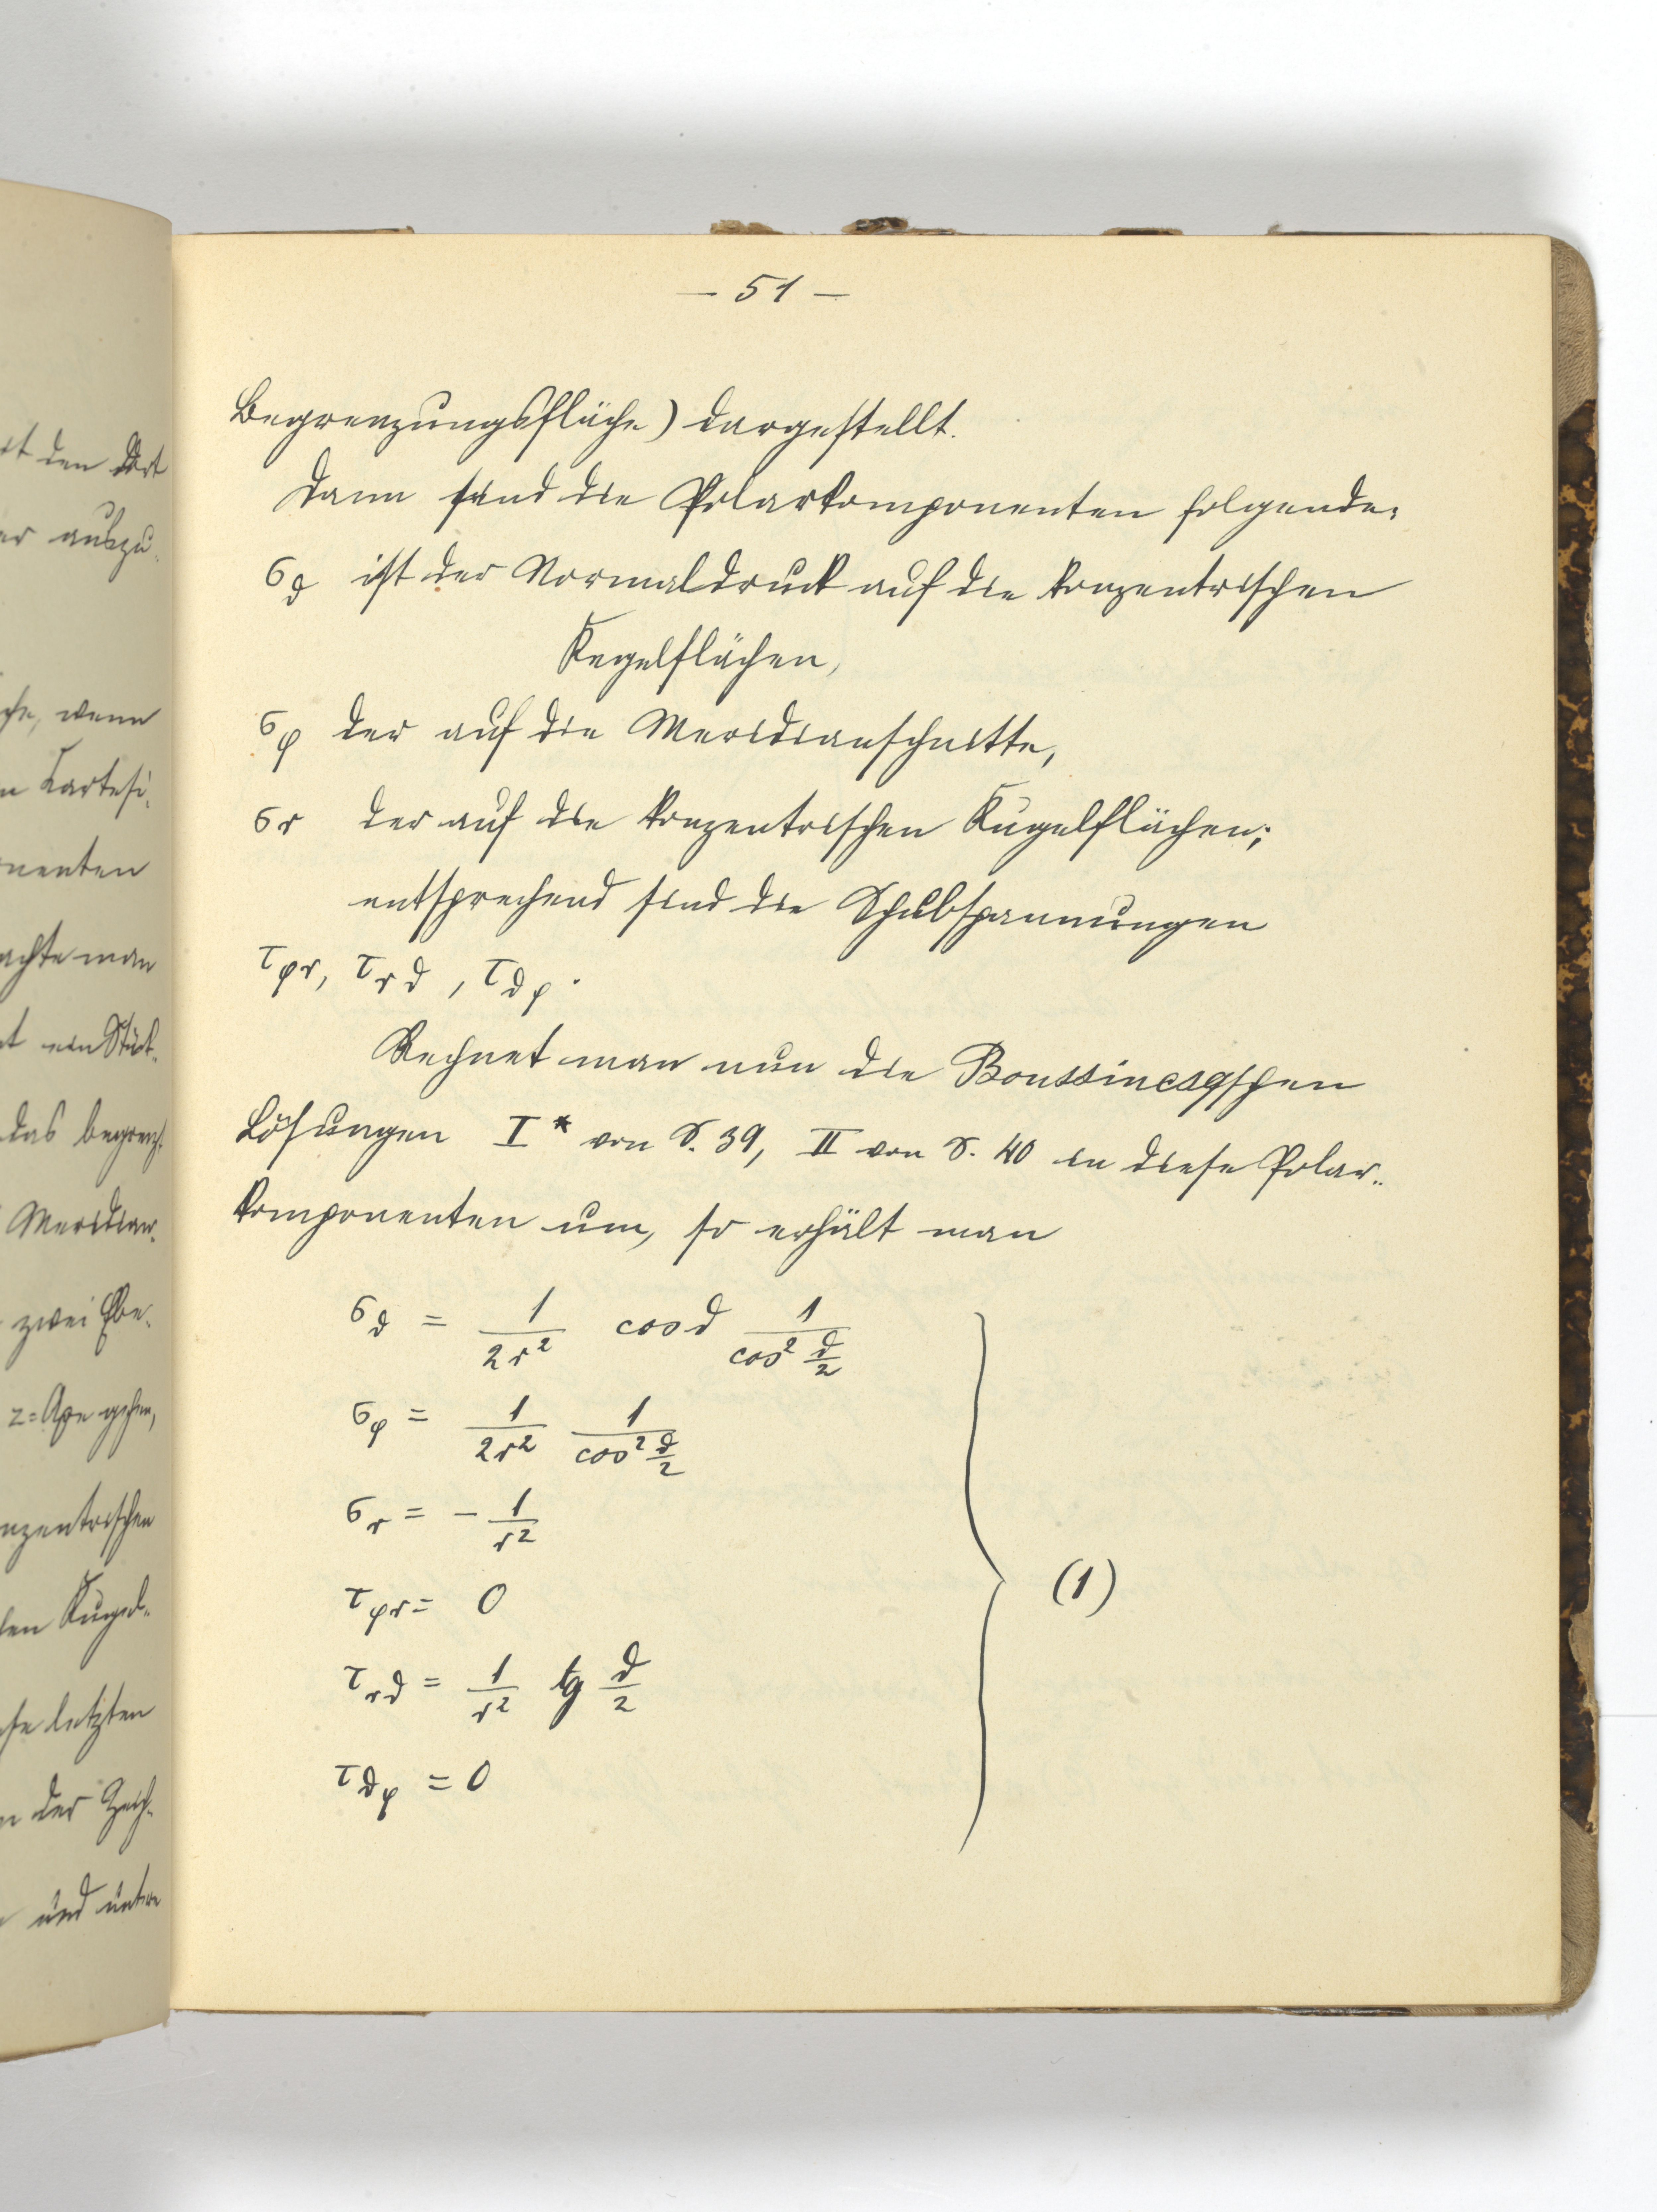 — 51 —
Begrenzungsfläche) dargestellt.
Dann sind die Polarkomponenten folgende:
σ_ϑ ist der Normaldruck auf die konzentrischen
Kegelflächen,
σ_φ der auf die Meridianschnitte,
σ_r der auf die konzentrischen Kugelflächen;
entsprechend sind die Schubspannungen
τ_φr, τ_rϑ, τ_ϑφ.
Rechnet man nun die Boussinesqschen
Lösungen I* von S. 39, II von S. 40 in diese Polar-
komponenten um, so erhält man
σ_ϑ = 1/(2r²) cos ϑ 1/(cos² ϑ/2)
σ_φ = 1/(2r²) 1/(cos² ϑ/2)
σ_r = - 1/r²
τ_φr = 0
(1)
τ_rϑ = 1/r² tg ϑ/2
τ_ϑφ = 0
den Ort
er auszu-
wenn
Kartesi-
nenten
achte man
ein Stück-
das begrenz-
Meridian-
zwei Ebe-
z=Axe gehen,
nzentrischen
len Kugel-
letzten
der Zeich-
und untere